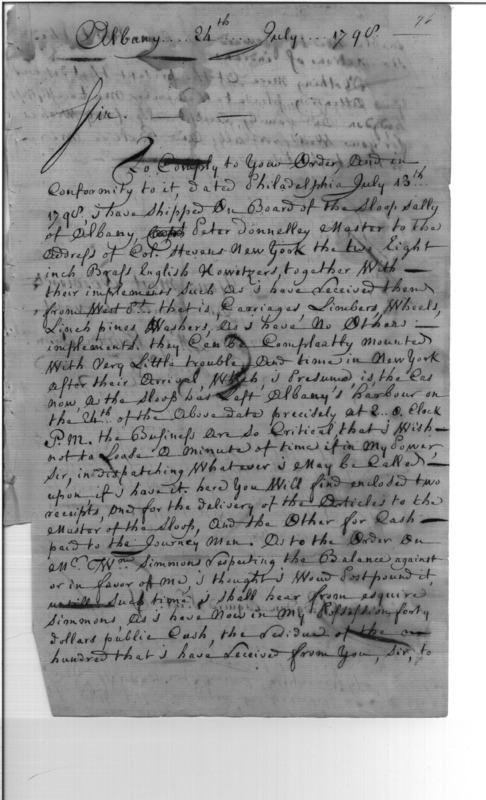 96
Albany..... 24th July.... 1798
Sir.
To Comply to Your Order, And in
Conformity to it, dated Philadelphia July 13th
1798, i have Shipped On Board of the Sloop Sally
of Albany Capt Peter Donnelley Master to the
address of Col. Stevens New York the two Eight
inch Brass English Howitzers, together With
their implements Such As i have Received them
from West Pt. that is, Carriages, Limbers, Wheels,
Linch pines Washers, As i have No Others
implements. they Can be Compleatly mounted
With Very Little trouble And time in New York
After their Arrival, Which, i Presume is, the Cas
now, as the Sloop has Left Albany's Harbour on
the 24th of the Above date precisely at 2.. o. Clock
P.M. the Business are So Critical that i Wish
not to Loase A Minute of time if in My Power,
Sir, in dispatching Whatever i May be Called
upon if i have it. here You Will find enclosed two
receipts, one for the delivery of the Articles to the
Master of the Sloop, And the Other for Cash
paid to the Journey Men. As to the Order On
Mr. Wm Simmons respecting the Balance against
or in favor of Me, i thought i Woud Postpond it
untill Such time i Shall hear from esquire
Simmons, As i have Now in My Possession forty
dollars public Cash, the residue of the one
hundred that i have Received from You, Sir, to